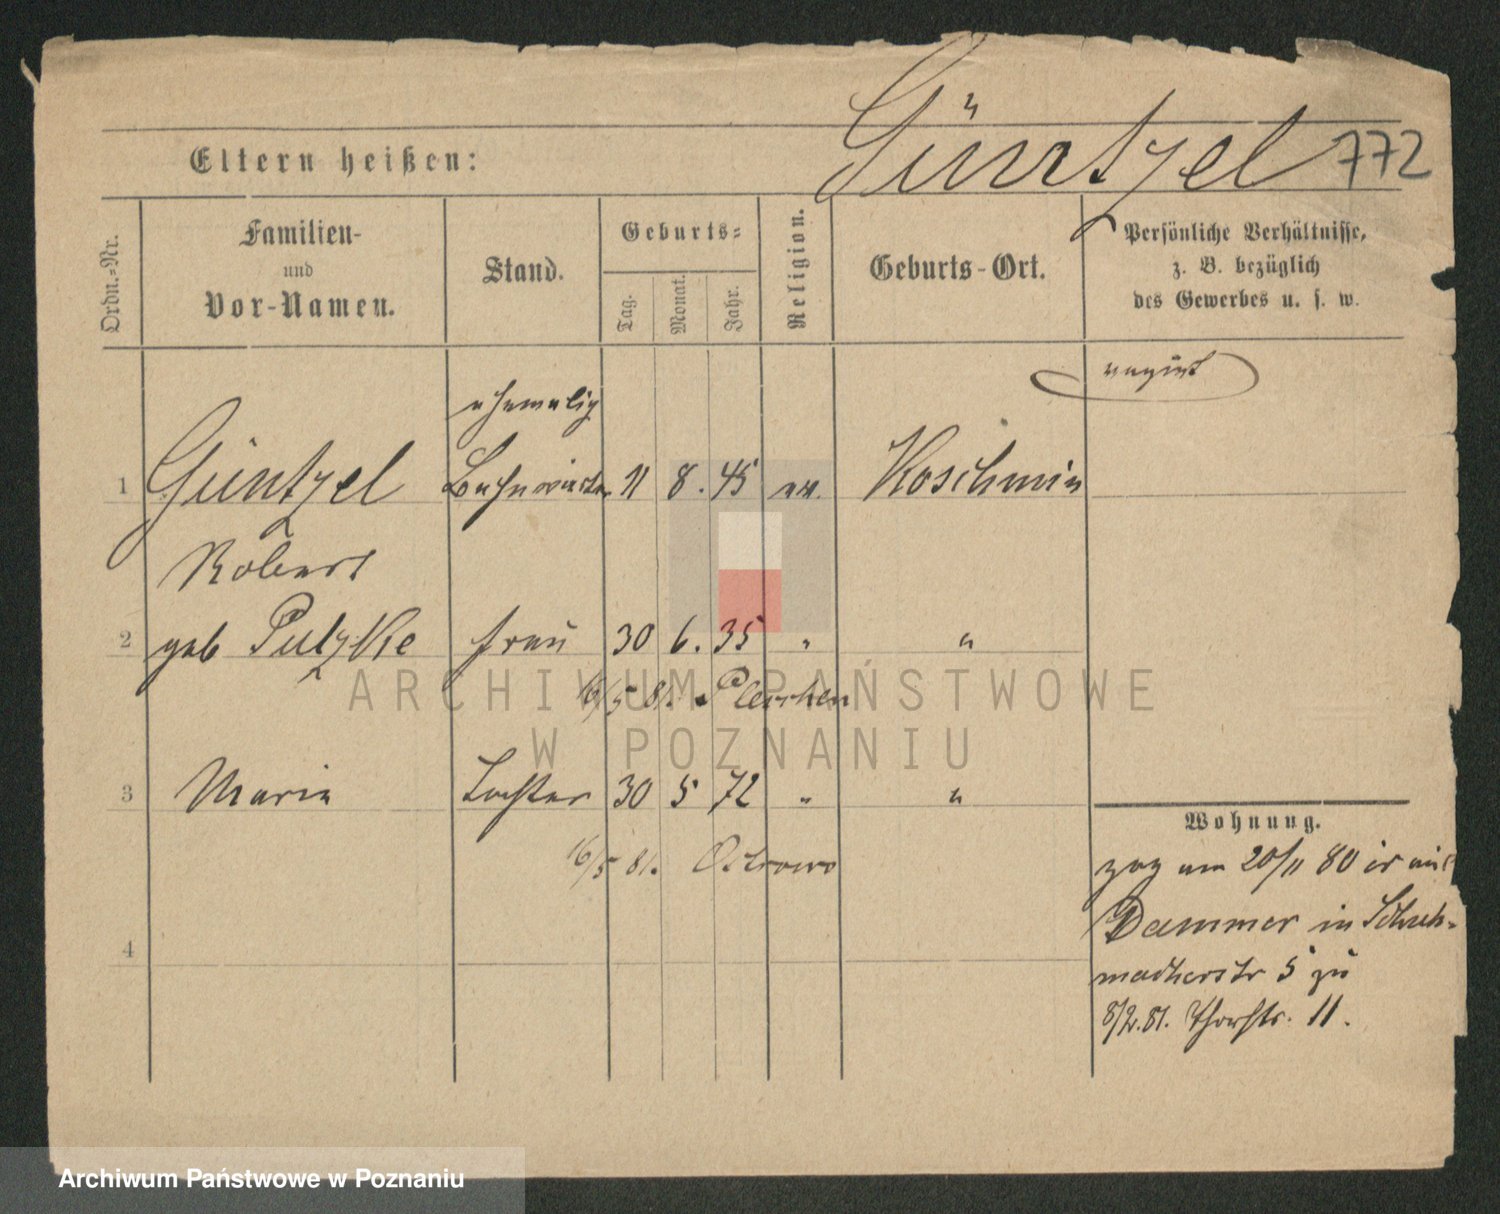 Güntzel 772
Eltern heißen:
Ordn.-Nr.
Familien-
und
Vor-Namen.
Stand.
Geburts-
Tag.
Monat.
Jahr.
Religion.
Geburts-Ort.
Persönliche Verhältnisse,
z. B. bezüglich
des Gewerbes u. s. w.
ehemalig
1 Güntzel 11 8. 45 ev. Koschmin
Robert
2 geb Putzke frau 30 6. 35 " "
16/5 81. Pleschen
3 Marie Tochter 30 5 72 " "
16/5 81. Ostrowo
4
Wohnung.
zog am 20/11 80 er mit
Dammer in Schuh-
macherstr 5 zu
8/2. 81. Thorstr. 11.
ARCHIWUM PAŃSTWOWE
W POZNANIU
Archiwum Państwowe w Poznaniu